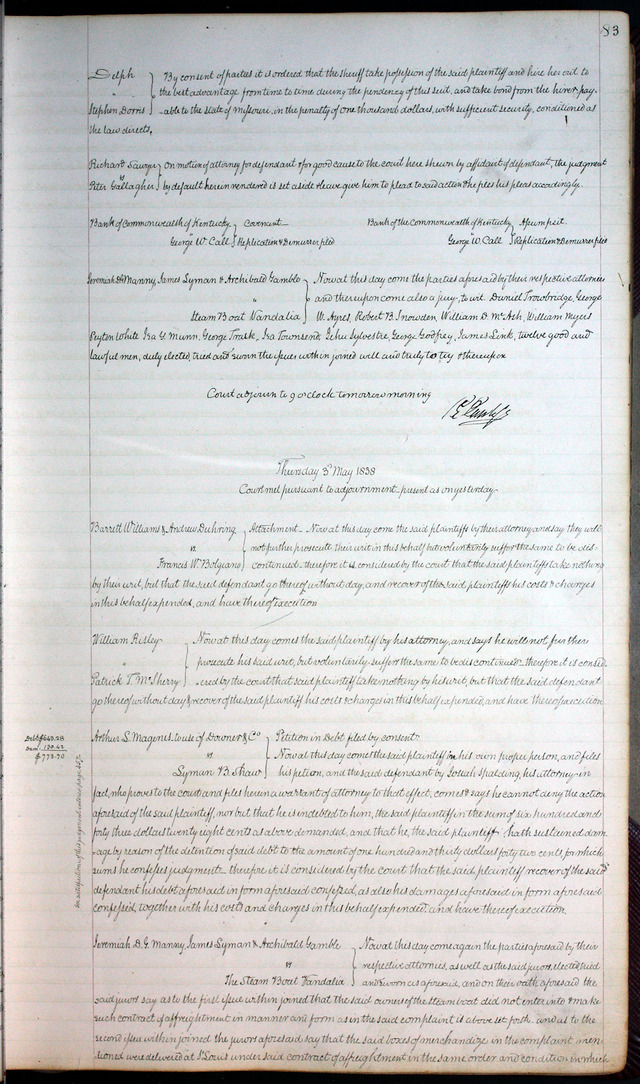 83
Delph } By consent of parties it is ordered that the sheriff take possession of the said plaintiff and hire her out to
" the best advantage from time to time during the pendency of this suit, and take bond from the hirer pay-
Stephen Dorris } -able to the state of missouri, in the penalty of one thousand dollars, with sufficient security, conditioned as
the law directs.
Richard Sawyer } on motion of attorney for defendant & for good cause to the court here shewn by affidavit of defendant, the judgment
vs
Peter Gallagher } by default herein rendered is set aside & leave give him to plead to said action & he files his pleas accordingly.
Bank of Commonwealth of Kentucky } Covenant Bank of the Commonwealth of Kentucky } Assumpsit
George W. Call } Replication & Demurrer filed George W. Call } Replication & Demurrer filed
Jeremiah D. Manny, James Lyman & Archibald Gamble } Now at this day come the parties aforesaid by their respective attornies
" and thereupon come also a jury, to wit. Daniel Trowbridge, George
Steam Boat Vandalia } W. Ayres, Robert B. Snowden, William D. McAsh, William Myers
Peyton White, Ira G. Munn, George Trask, Ira Townsend, Jehu Sylvestre, George Godfrey, James Link, twelve good and
lawful men, duly elected, tried and sworn the issues within joined well and truly to try & thereupon
Court adjourn to 9 o'clock tomorrow morning
Thursday 3d May 1838
Court met pursuant to adjournment present as on yesterday
Barrett Williams & Andrew Duhring } Attachment Now at this day come the said plaintiffs by their attorney and say they will
vs not further prosecute their writ in this behalf but voluntarily suffer the same to be dis-
Francis W. Bolgiano } continued. therefore it is considered by the court that the said plaintiffs take nothing
by their writ, but that the said defendant go thereof without day, and recover of the said plaintiffs his costs & charges
in this behalf expended, and have thereof execution
William Risley } Now at this day comes the said plaintiff by his attorney, and says he will not further
" prosecute his said writ, but voluntarily suffer the same to be discontinued therefore it is consid-
Patrick T. McSherry } ered by the court that said plaintiff take nothing by his writ, but that the said defendant
go thereof without day & recover of the said plaintiff his costs & charges in this behalf expended, and have thereof execution
Debt $643.28
Dam 130.42
$773.70
In satisfaction of this judgment entered page
Arthur L. Magenis to use of Downer & Co } Petition in Debt filed by consent
vs Now at this day comes the said plaintiff in his own proper person, and files
Lyman B. Shaw } his petition, and the said defendant by Josiah Spalding, his attorney in
fact, who proves to the court and files herein a warrant of attorney to that effect, comes & says he cannot deny the action
aforesaid of the said plaintiff, nor but that he is indebted to him, the said plaintiff in the sum of six hundred and
forty three dollars twenty eight cents as above demanded, and that he, the said plaintiff hath sustained dam
-age by reason of the detention of said debt to the amount of one hundred and thirty dollars forty two cents, for which
sums he confesses judgment therefore it is considered by the court that the said plaintiff recover of the said
defendant his debt aforesaid in form aforesaid confessed, as also his damages aforesaid in form aforesaid
confessed, together with his costs and charges in this behalf expended, and have thereof execution.
Jeremiah D. G. Manny, James Lyman & Archibald Gamble } Now at this day come again the parties aforesaid by their
vs respective attornies, as well as the said jurors, elected, tried
The Steam Boat Vandalia } and sworn as aforesaid, and on their oath aforesaid the
said jurors say as to the first issue within joined that the said owners of the steam boat did not enter into & make
such contract of affreightment in manner and form as in the said complaint is above set forth. and as to the
second issue within joined the jurors aforesaid say that the said boxes of merchandize in the complaint men
tioned were delivered at St. Louis under said contract of affreightment in the same order and condition in which